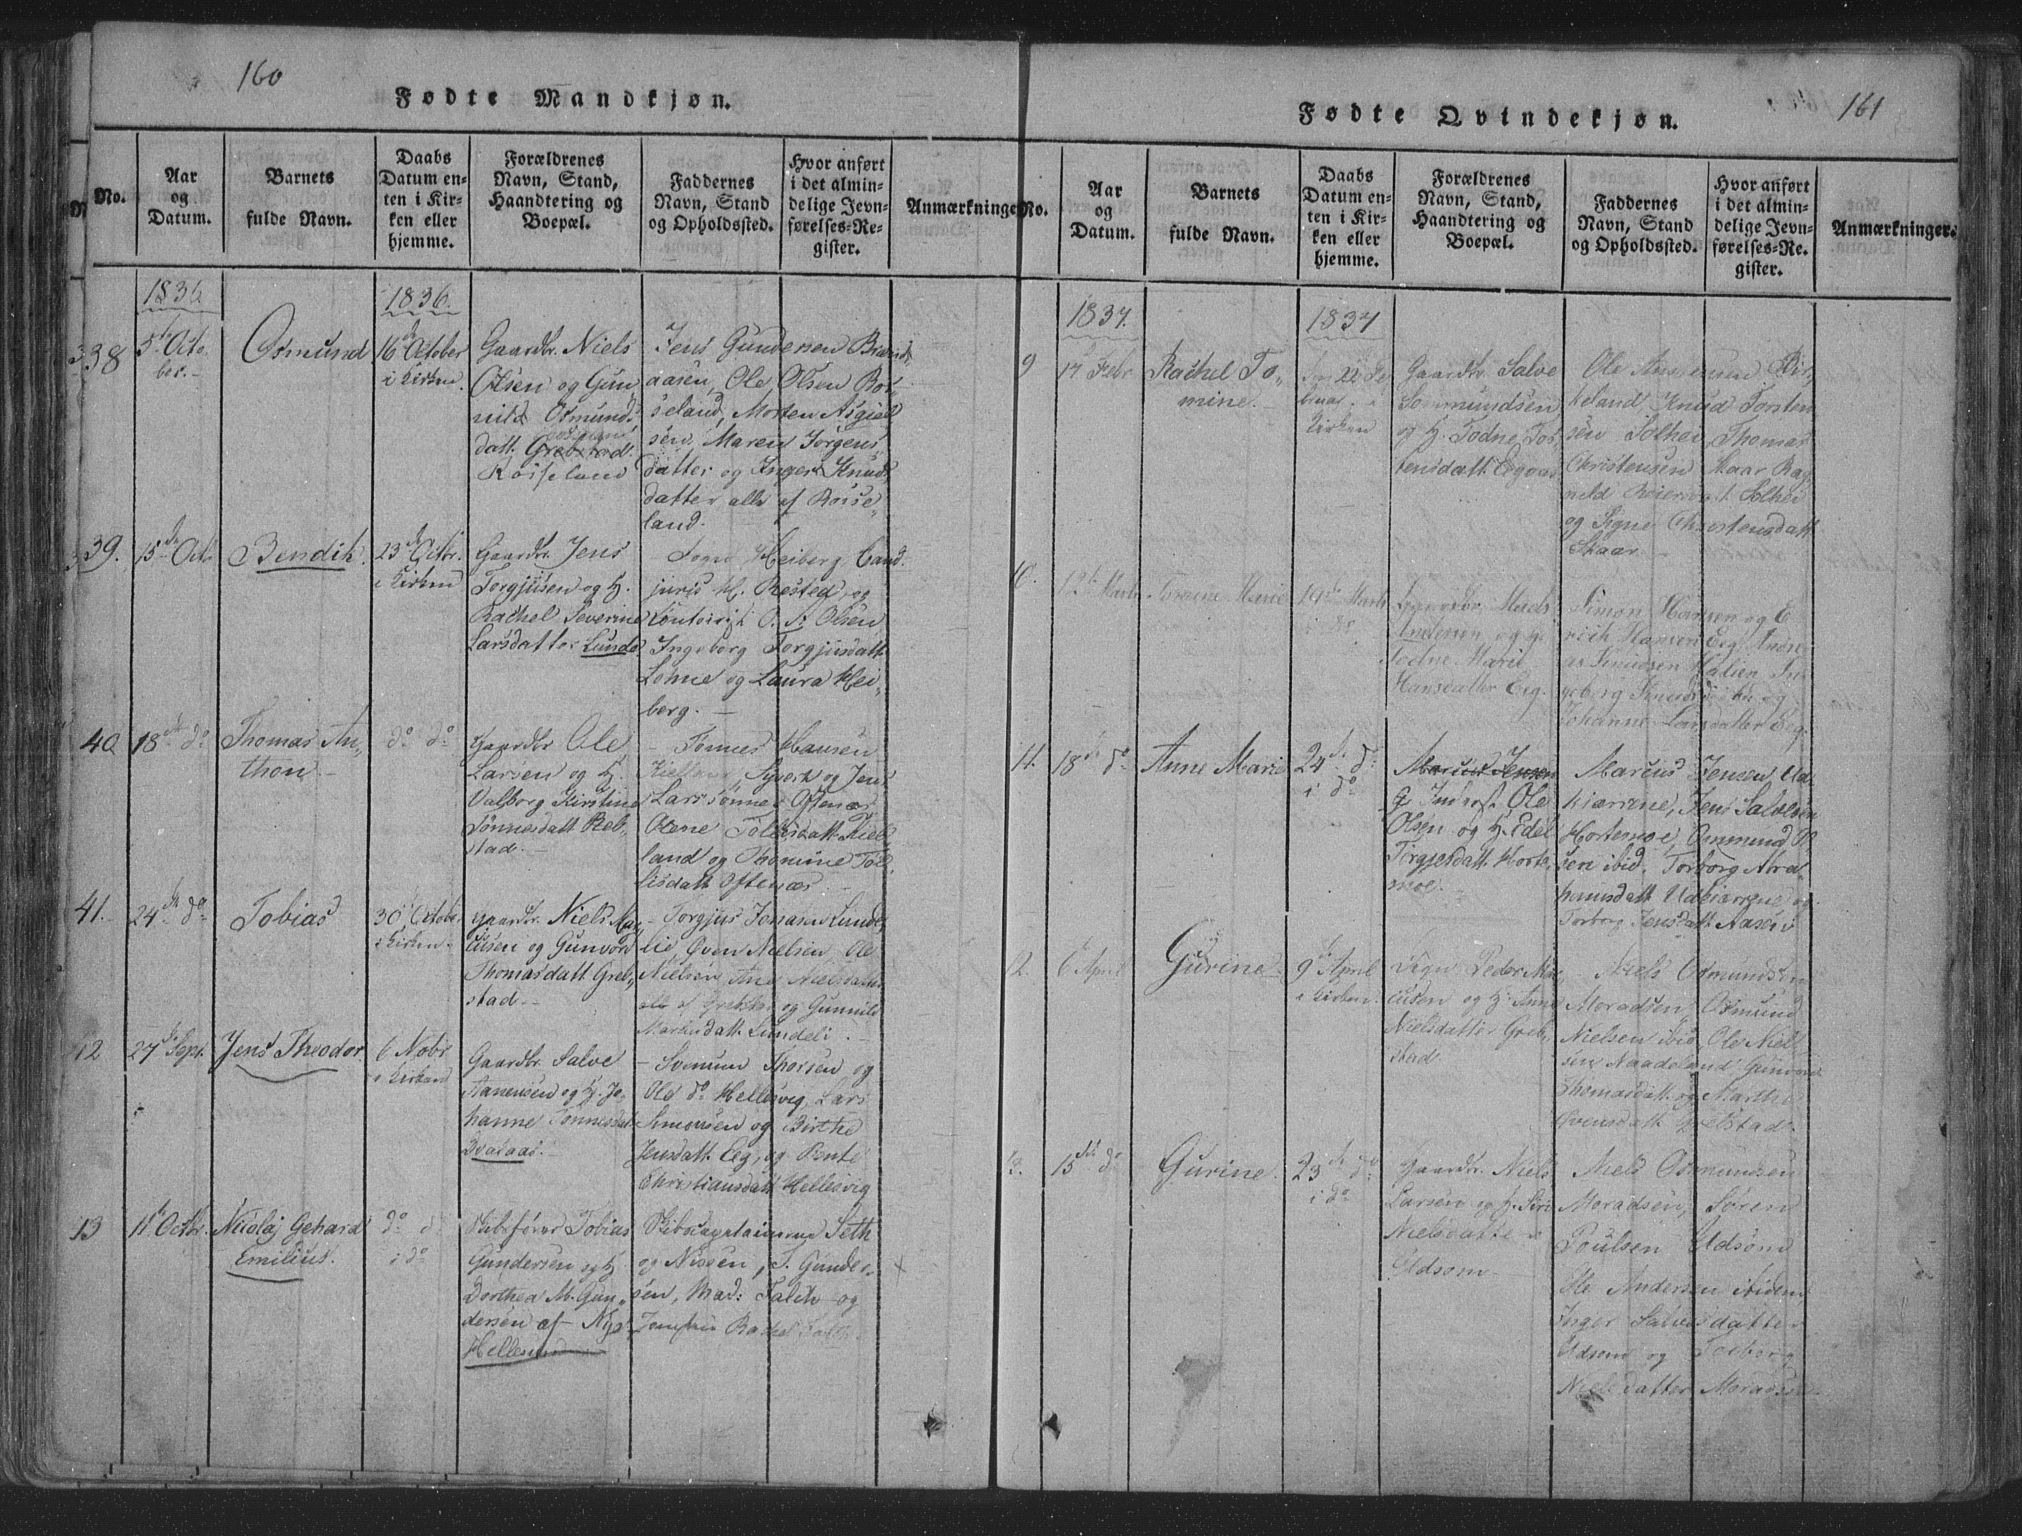 160
Fødte Mandkjøn.
No.
Aar
og
Datum.
Barnets
fulde Navn.
Daabs
Datum en-
ten i Kir-
ken eller
hjemme.
Forældrenes
Navn, Stand,
Haandtering og
Boepæl.
Faddernes
Navn, Stand
og Opholdssted.
Hvor anført
i det almin-
delige Jevn-
førelses-Re-
gister.
Anmærkninger
1836
1836.
38
5te Octo
ber.
Osmund
16de October
i Kirken
Gaardbr. Niels
Olsen og Gun
nild Osmunds
datt.
Roiseland
Jens Gundersen
aasen, Ole Olsen Roi
seland, Morten Asgiel
sen, Maren Jørgens
datter og Inger Knuds
datter alle af Roise
land.
39.
15de Octo
Bendik
23de Octbr.
i Kirken
Gaardbr. Jens
Torgjusen og H.
Rachel Severine
Larsdatter Lunde
Heiberg Cand.
juris H. Rested og
O. S. Olsen
Ingeborg Torgjusdatt.
Lohne og Laura Hei
berg.
40
18de do
Thomas An
thon
do do
Gaardbr Ole
Larsen og H.
Valborg Kirstine
Tønnesdatt. Reb
stad.
Tønnes Hansen
Syvert og Jens
Larssønner Oftenæs
Olene Tollisdatt. Kiel
land og Thomine Tol
lisdatt. Oftenæs
41.
24de do
Tobias
30 Octobr
i Kirken
Gaardbr. Niels Mar
cusen og Gunvor
Thomasdatt Greb
stad
Torgjus Jonasen Lunde
lie, Øven Nielsen, Ole
Nielsen, Ane Nielsdatter
og Gunnild
Marcusdatt. Lundeli
12
27de Sept.
Jens Theodor
6 Novbr
i Kirken
Gaardbr. Salve
Aanensen og H. Jo
hanne Tønnesdat
Svenum Thorsen og
Ole do Hellesvig, Lars
Simonsen og Birthe
Jensdatt. Eeg, og Bente
Christiansdatt Hellesvig
13
11te Octbr.
Nicolaj Gehard
Emilius.
do do
i do
Skibsfører Tobias
Gundersen og H.
Dorthea M. Gun
dersen af Ny
Hellesund
Skibscapitainerne Seth
og Nissen, S. Gunder
sen, Mad: Falch og
Jomfru Rachel
161
Fødte Qvindekjøn.
No.
Aar
og
Datum.
Barnets
fulde Navn.
Daabs
Datum en-
ten i Kir-
ken eller
hjemme.
Forældrenes
Navn, Stand,
Haandtering og
Boepæl.
Faddernes
Navn, Stand
og Opholdssted.
Hvor anført
i det almin-
delige Jevn-
førelses-Re-
gister.
Anmærkninger.
1837.
1837
9
17 Febr
Rachel To
mine.
22 Fe
bruar i
Kirken
Gaardbr. Salve
Sommundsen
og H. Todne Tos
tensdatt.
Ole Anensen Bir
keland, Knud Torsten
sen Solhei, Thomas
Christensen Skaar Rag
nild Reiersdat. Solhei
og Signe Christensdatt
Skaar
10.
12te Marts
Tomine Marie
19de Marts
i do
Gaardbr. Mads
Andersen og H.
Todne Marie
Hansdatter Eeg.
Simon Hansen og E
rich Hansen Eeg, Andre
as Knudsen Hallien, In
geborg
Johanne Larsdatter Eeg.
11.
18de do
Anne Marie
24de do
i do
Marcus Jensen
G. Inderst Ole
Olsen og H. Edel
Torgjesdatt. Horte
moe.
Marcus Jensen Ud
kiærrene, Jens Salvesen
Hortemoe, Ommund O
sen ibid, Torborg Abra
hamsdatt Udkiærrene og
Torborg Jensdatt. Aasen
12.
6 April
Gurine
9de April
i Kirken.
Peder Mar
cusen og H. Anne
Nielsdatter Greb
stad.
Niels Osmundsen
Moradsen, Osmund
Nielsen ibid, Ole Niel
sen Naadeland, Gunvor
Thomasdatt. og Marthe
Øvensdatt. Grebstad.
13.
15de do
Gurine
23de do
i do
Gaardbr. Niels
Larsen og H. Siri
Nielsdatter
Udsom
Niels Osmundsen
Moradsen, Søren
Poulsen Udsom
Ole Andersen ibidem,
Inger Salvesdatter
Udsom og Torborg
Nielsdatter Moradsen